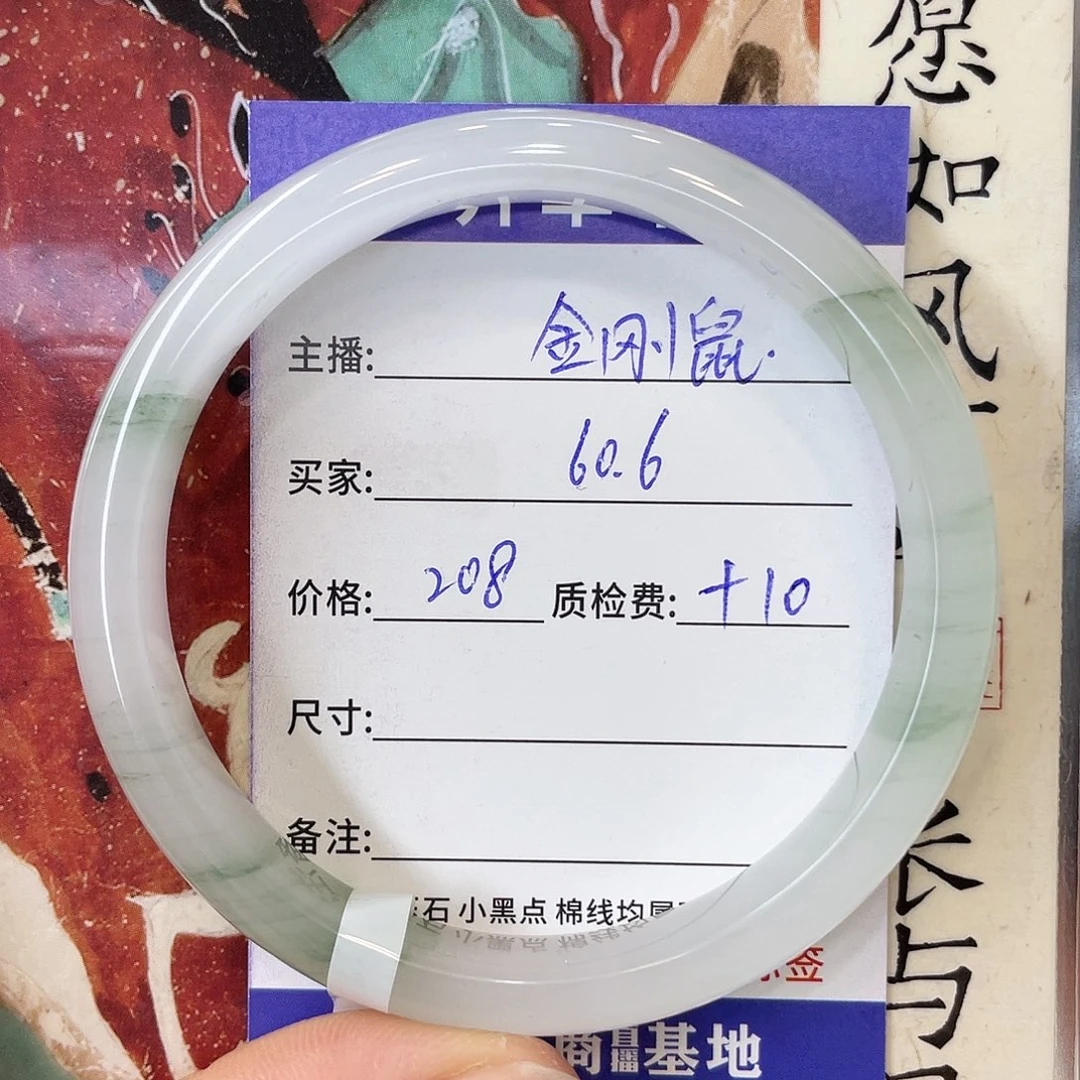 愿如风
长与
主播: 金刚鼠.
买家: 60.6
价格: 208 质检费: +10
尺寸:
备注:
石 小黑点 棉线均属
签
商直播基地